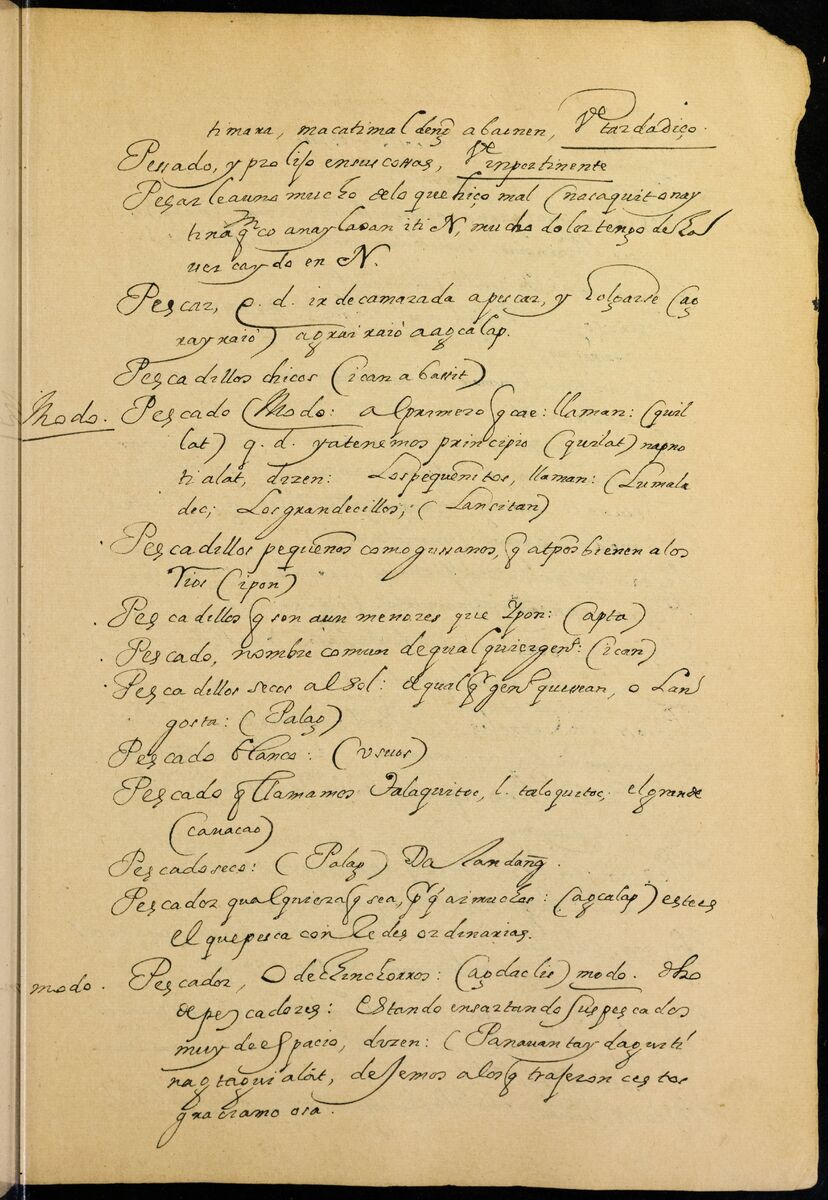 timara, macatimal deng̃ abainen, Vᵉ tardadiço.
Pessado, y prolijo en sus cossas, Vᵉ inportinente
Peçarle a uno mucho de lo que hiço mal (nacaquitonay
tina qco anaylaoan iti N, mucho dolor tengo de ha
uer caydo en N.
Pescar, q. d. ir de camarada a pescar, y holgarse (ag
rayraio) agrairaio a agcalap.
Pescadillos chicos (ican a bassit)
Modo. Pescado (Modo: al primero q̃ cae: llaman: (quil
lat) q. d. ya tenemos principio (quilat) napno
ti alat, dizen: Los pequeñitos, llaman: (Lumala
dec; Los grandecillos; (Lansitan)
Pescadillos pequeños como gussanos, q̃ a tp̃os bienen a los
rios (ipon)
Pescadillos q̃ son aun menores que Ypon: (apta)
Pescado, nombre comun de qualquier genᵒ: (ican)
Pescadillos secos al sol: de qualq̃ʳ genᵒ que sean, o Lan
gosta: (Palag)
Pescado blanco: (vsuos)
Pescado q̃ llamamos Talaquitoc, l. taloquitoc, el grande
(cauacao)
Pescado seco: (Palag) Daландang.
Pescador qualquiera q̃ sea, p̃ q̃ ai muchos: (agcalap) este es
el que pesca con Redes ordinarias.
modo. Pescador, O de chinchorros: (agdaclis) modo. dho
de pescadores: Estando ensartando sus pescados
muy de espacio, dizen: (Panauantay daguiti
nagtagui alat, dejemos a los q̃ trajeron cestos
graciamo osa.